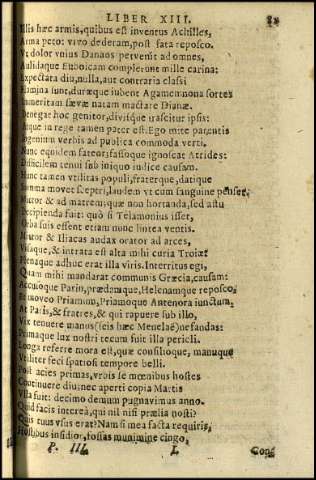 LIBER XIII.
Illis hæc armis, quibus est inventus Achilles,
Arma peto: vivo dederam, post fata reposco.
Vt dolor vnius Danaos pervenit ad omnes,
Aulidaque Euboicam complerunt mille carinæ:
Expectata diu, nulla, aut contraria classi
Flamina sunt, duræque iubent Agamemnona sortes
Immeritam sævæ natam mactare Dianæ.
Denegat hoc genitor, divisque irascitur ipsis:
Atque in rege tamen pater est. Ego mite parentis
Ingenium verbis ad publica commoda verti.
Nunc equidem fateor, fassoque ignoscat Atrides:
Difficilem tenui sub iniquo iudice causam.
Hunc tamen vtilitas populi, fraterque, datique
Summa movet sceptri, laudem vt cum sanguine penset.
Mittor & ad matrem: quæ non hortanda, sed astu
Decipienda fuit: quò si Telamonius isset,
Orba suis essent etiam nunc lintea ventis.
Mittor & Iliacas audax orator ad arces,
Visaque, & intrata est alta mihi curia Troiæ:
Plenaque adhuc erat illa viris. Interritus egi,
Quam mihi mandarat communis Græcia, causam:
Accusoque Parin, prædamque, Helenamque reposco,
Et moveo Priamum, Priamoque Antenora iunctum,
At Paris, & fratres, & qui rapuere sub illo,
Vix tenuere manus (scis hæc Menelaë) nefandas:
Primaque lux nostri tecum fuit illa pericli.
Longa referre mora est, quæ consilioque, manuque
Vtiliter feci spatiosi tempore belli.
Post acies primas, vrbis se mœnibus hostes
Continuere diu; nec aperti copia Martis
Vlla fuit: decimo demum pugnavimus anno.
Quid facis intereà, qui nil nisi prælia nosti?
Quis tuus vsus erat? Nam si mea facta requiris,
Hostibus insidior, fossas munimine cingo,
P. III. L Con-